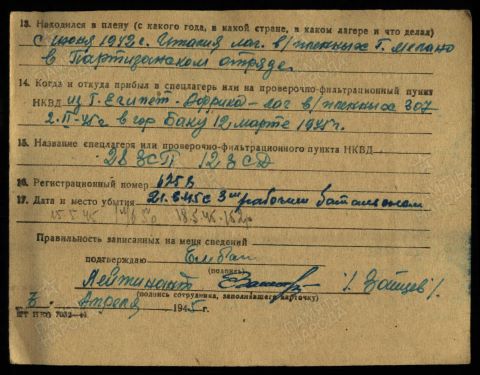 13. Находился в плену (с какого года, в какой стране, в каком лагере и что делал)
с июня 1942 г. Италия лаг. в/пленных г. Мелано
в Партизанском отряде.
14. Когда и откуда прибыл в спецлагерь или на проверочно-фильтрационный пункт
НКВД из г. Египет - Африка - лаг в/пленных 307
2.II-45г в гор Баку 12 марта 1945г.
15. Название спецлагеря или проверочно-фильтрационного пункта НКВД
28 ЗСП 12 ЗСД
16. Регистрационный номер
17. Дата и место убытия 21.6.45г с 3им рабочим батальоном
15.5.45 18.5.45
Правильность записанных на меня сведений
подтверждаю
(подпись)
Лейтинант / Зайцев /.
(подпись сотрудника, заполнявшего карточку)
Апреля 1945 г.